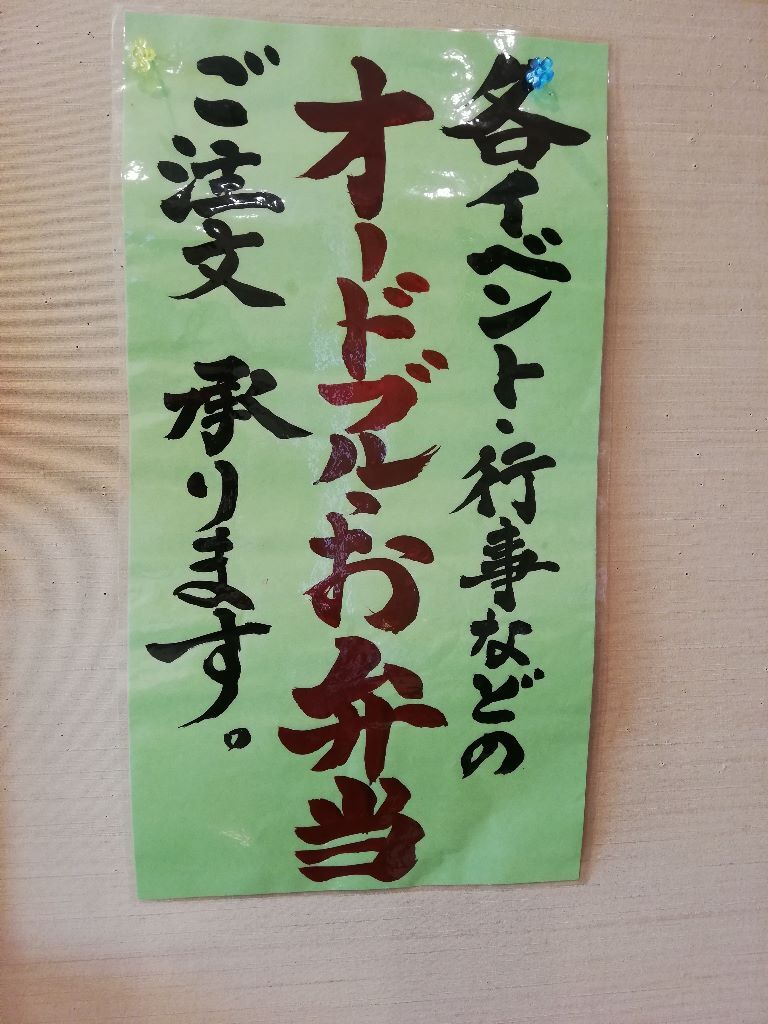 各イベント・行事などの
オードブル、お弁当
ご注文 承ります。